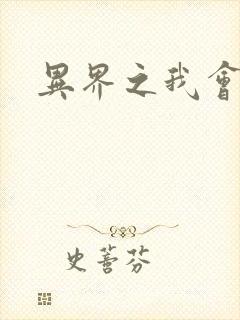 異界之我會
史蕾芬